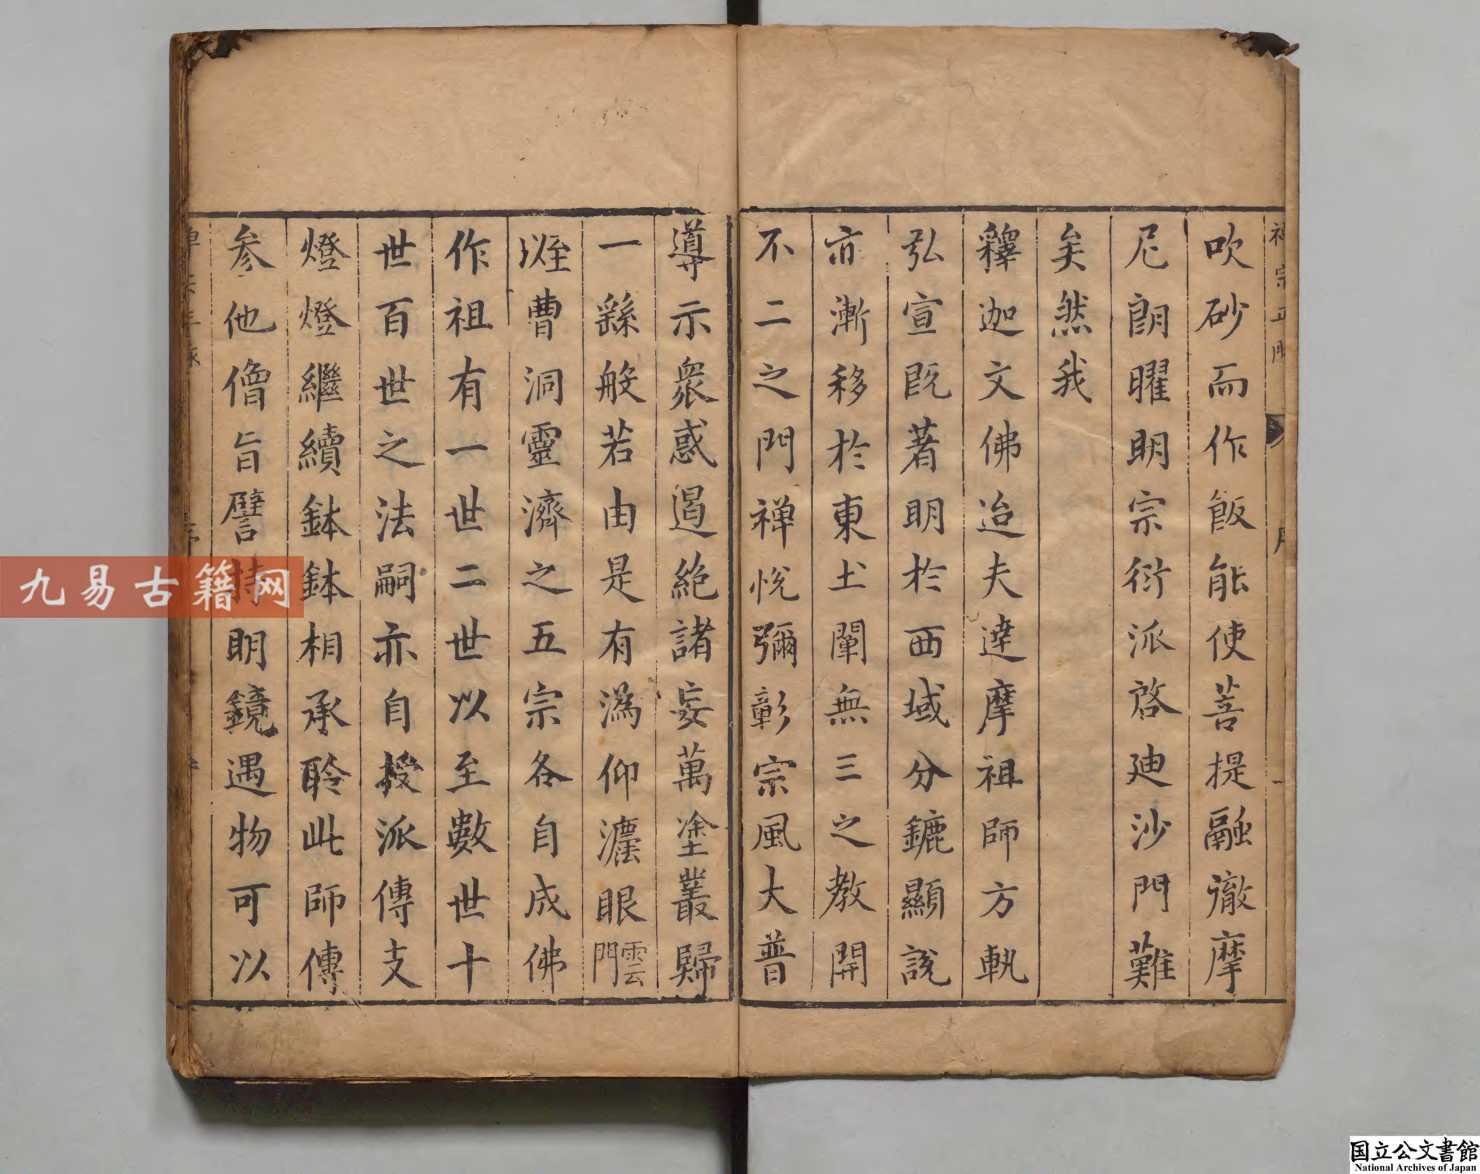 吹砂而作飯能使菩提融徹摩
尼朗曜明宗衍派啓迪沙門難
矣然我
釋迦文佛迨夫達摩祖師方執
弘宣既著明於西域分鑣顯說
亦漸移於東土闡無三之教開
不二之門禅悅彌彰宗風大普
導示衆惑遏絶諸妄萬塗叢歸
一繇般若由是有潙仰灋眼雲門
以至曹洞靈濟之五宗各自成佛
作祖有一世二世以至數世十
世百世之法嗣亦自授派傳支
燈燈繼續鉢鉢相承聆此師傳
参他僧旨譬持明鏡遇物可以
九易古籍网
国立公文書館
National Archives of Japan